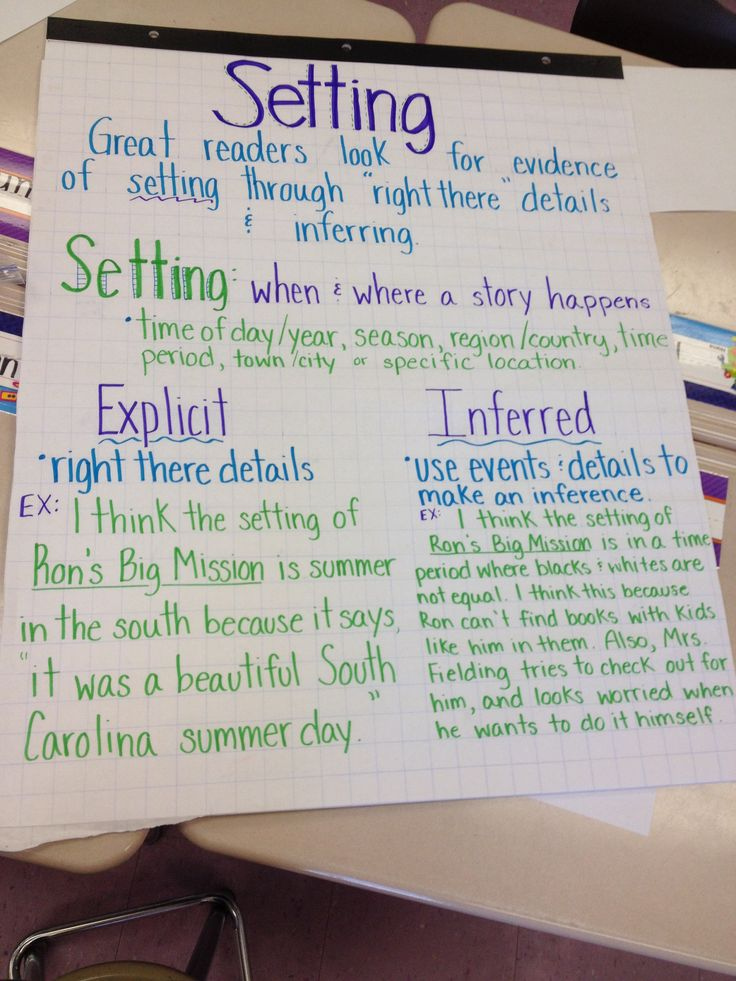 Setting
Great readers look for evidence
of setting through "right there" details
& inferring.
Setting: when & where a story happens
• time of day/year, season, region/country, time
period, town/city or specific location.
Explicit
• right there details
EX: I think the setting of
Ron's Big Mission is summer
in the south because it says,
"it was a beautiful South
Carolina summer day."
Inferred
• use events & details to
make an inference.
EX: I think the setting of
Ron's Big Mission is in a time
period where blacks & whites are
not equal. I think this because
Ron can't find books with kids
like him in them. Also, Mrs.
Fielding tries to check out for
him, and looks worried when
he wants to do it himself.